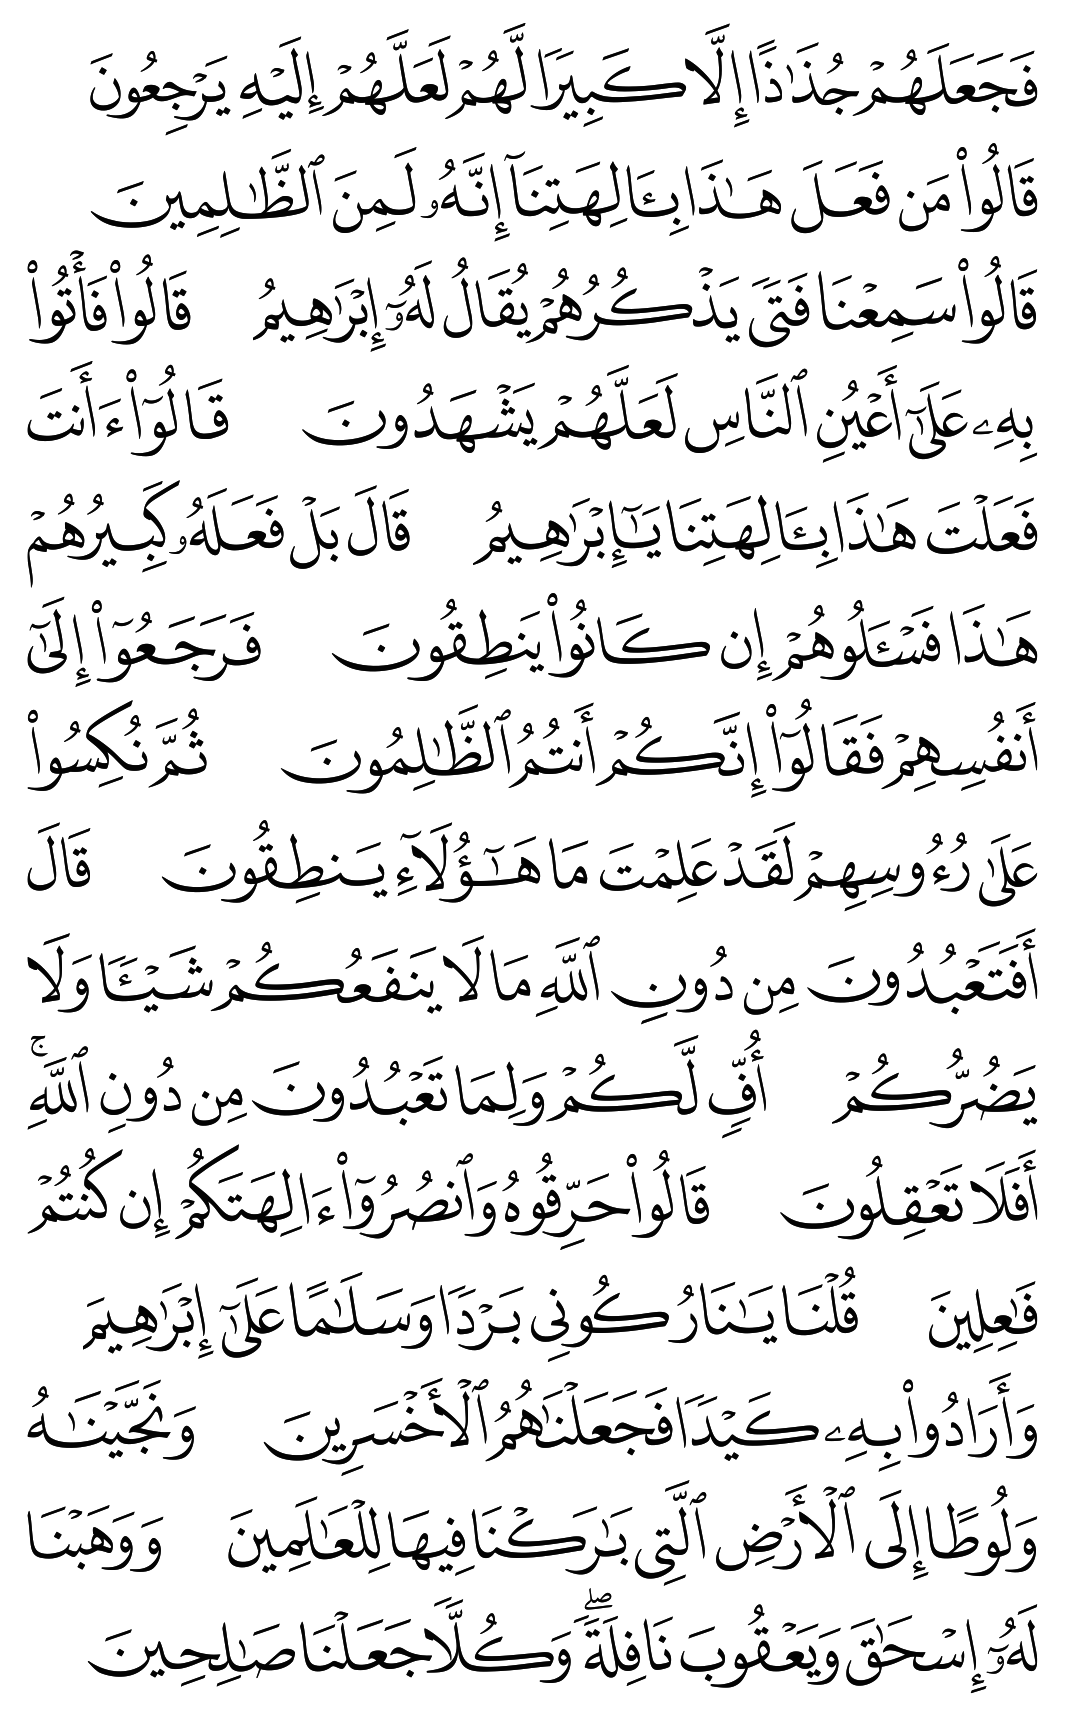 فَجَعَلَهُمْ جُذَٰذًا إِلَّا كَبِيرًۭا لَّهُمْ لَعَلَّهُمْ إِلَيْهِ يَرْجِعُونَ
قَالُوا۟ مَن فَعَلَ هَـٰذَا بِـَٔالِهَتِنَآ إِنَّهُۥ لَمِنَ ٱلظَّـٰلِمِينَ
قَالُوا۟ سَمِعْنَا فَتًۭى يَذْكُرُهُمْ يُقَالُ لَهُۥٓ إِبْرَٰهِيمُ قَالُوا۟ فَأْتُوا۟
بِهِۦ عَلَىٰٓ أَعْيُنِ ٱلنَّاسِ لَعَلَّهُمْ يَشْهَدُونَ قَالُوٓا۟ ءَأَنتَ
فَعَلْتَ هَـٰذَا بِـَٔالِهَتِنَا يَـٰٓإِبْرَٰهِيمُ قَالَ بَلْ فَعَلَهُۥ كَبِيرُهُمْ
هَـٰذَا فَسْـَٔلُوهُمْ إِن كَانُوا۟ يَنطِقُونَ فَرَجَعُوٓا۟ إِلَىٰٓ
أَنفُسِهِمْ فَقَالُوٓا۟ إِنَّكُمْ أَنتُمُ ٱلظَّـٰلِمُونَ ثُمَّ نُكِسُوا۟
عَلَىٰ رُءُوسِهِمْ لَقَدْ عَلِمْتَ مَا هَـٰٓؤُلَآءِ يَنطِقُونَ قَالَ
أَفَتَعْبُدُونَ مِن دُونِ ٱللَّهِ مَا لَا يَنفَعُكُمْ شَيْـًۭٔا وَلَا
يَضُرُّكُمْ أُفٍّۢ لَّكُمْ وَلِمَا تَعْبُدُونَ مِن دُونِ ٱللَّهِ ۚ
أَفَلَا تَعْقِلُونَ قَالُوا۟ حَرِّقُوهُ وَٱنصُرُوٓا۟ ءَالِهَتَكُمْ إِن كُنتُمْ
فَـٰعِلِينَ قُلْنَا يَـٰنَارُ كُونِى بَرْدًۭا وَسَلَـٰمًا عَلَىٰٓ إِبْرَٰهِيمَ
وَأَرَادُوا۟ بِهِۦ كَيْدًۭا فَجَعَلْنَـٰهُمُ ٱلْأَخْسَرِينَ وَنَجَّيْنَـٰهُ
وَلُوطًا إِلَى ٱلْأَرْضِ ٱلَّتِى بَـٰرَكْنَا فِيهَا لِلْعَـٰلَمِينَ وَوَهَبْنَا
لَهُۥٓ إِسْحَـٰقَ وَيَعْقُوبَ نَافِلَةًۭ ۖ وَكُلًّۭا جَعَلْنَا صَـٰلِحِينَ